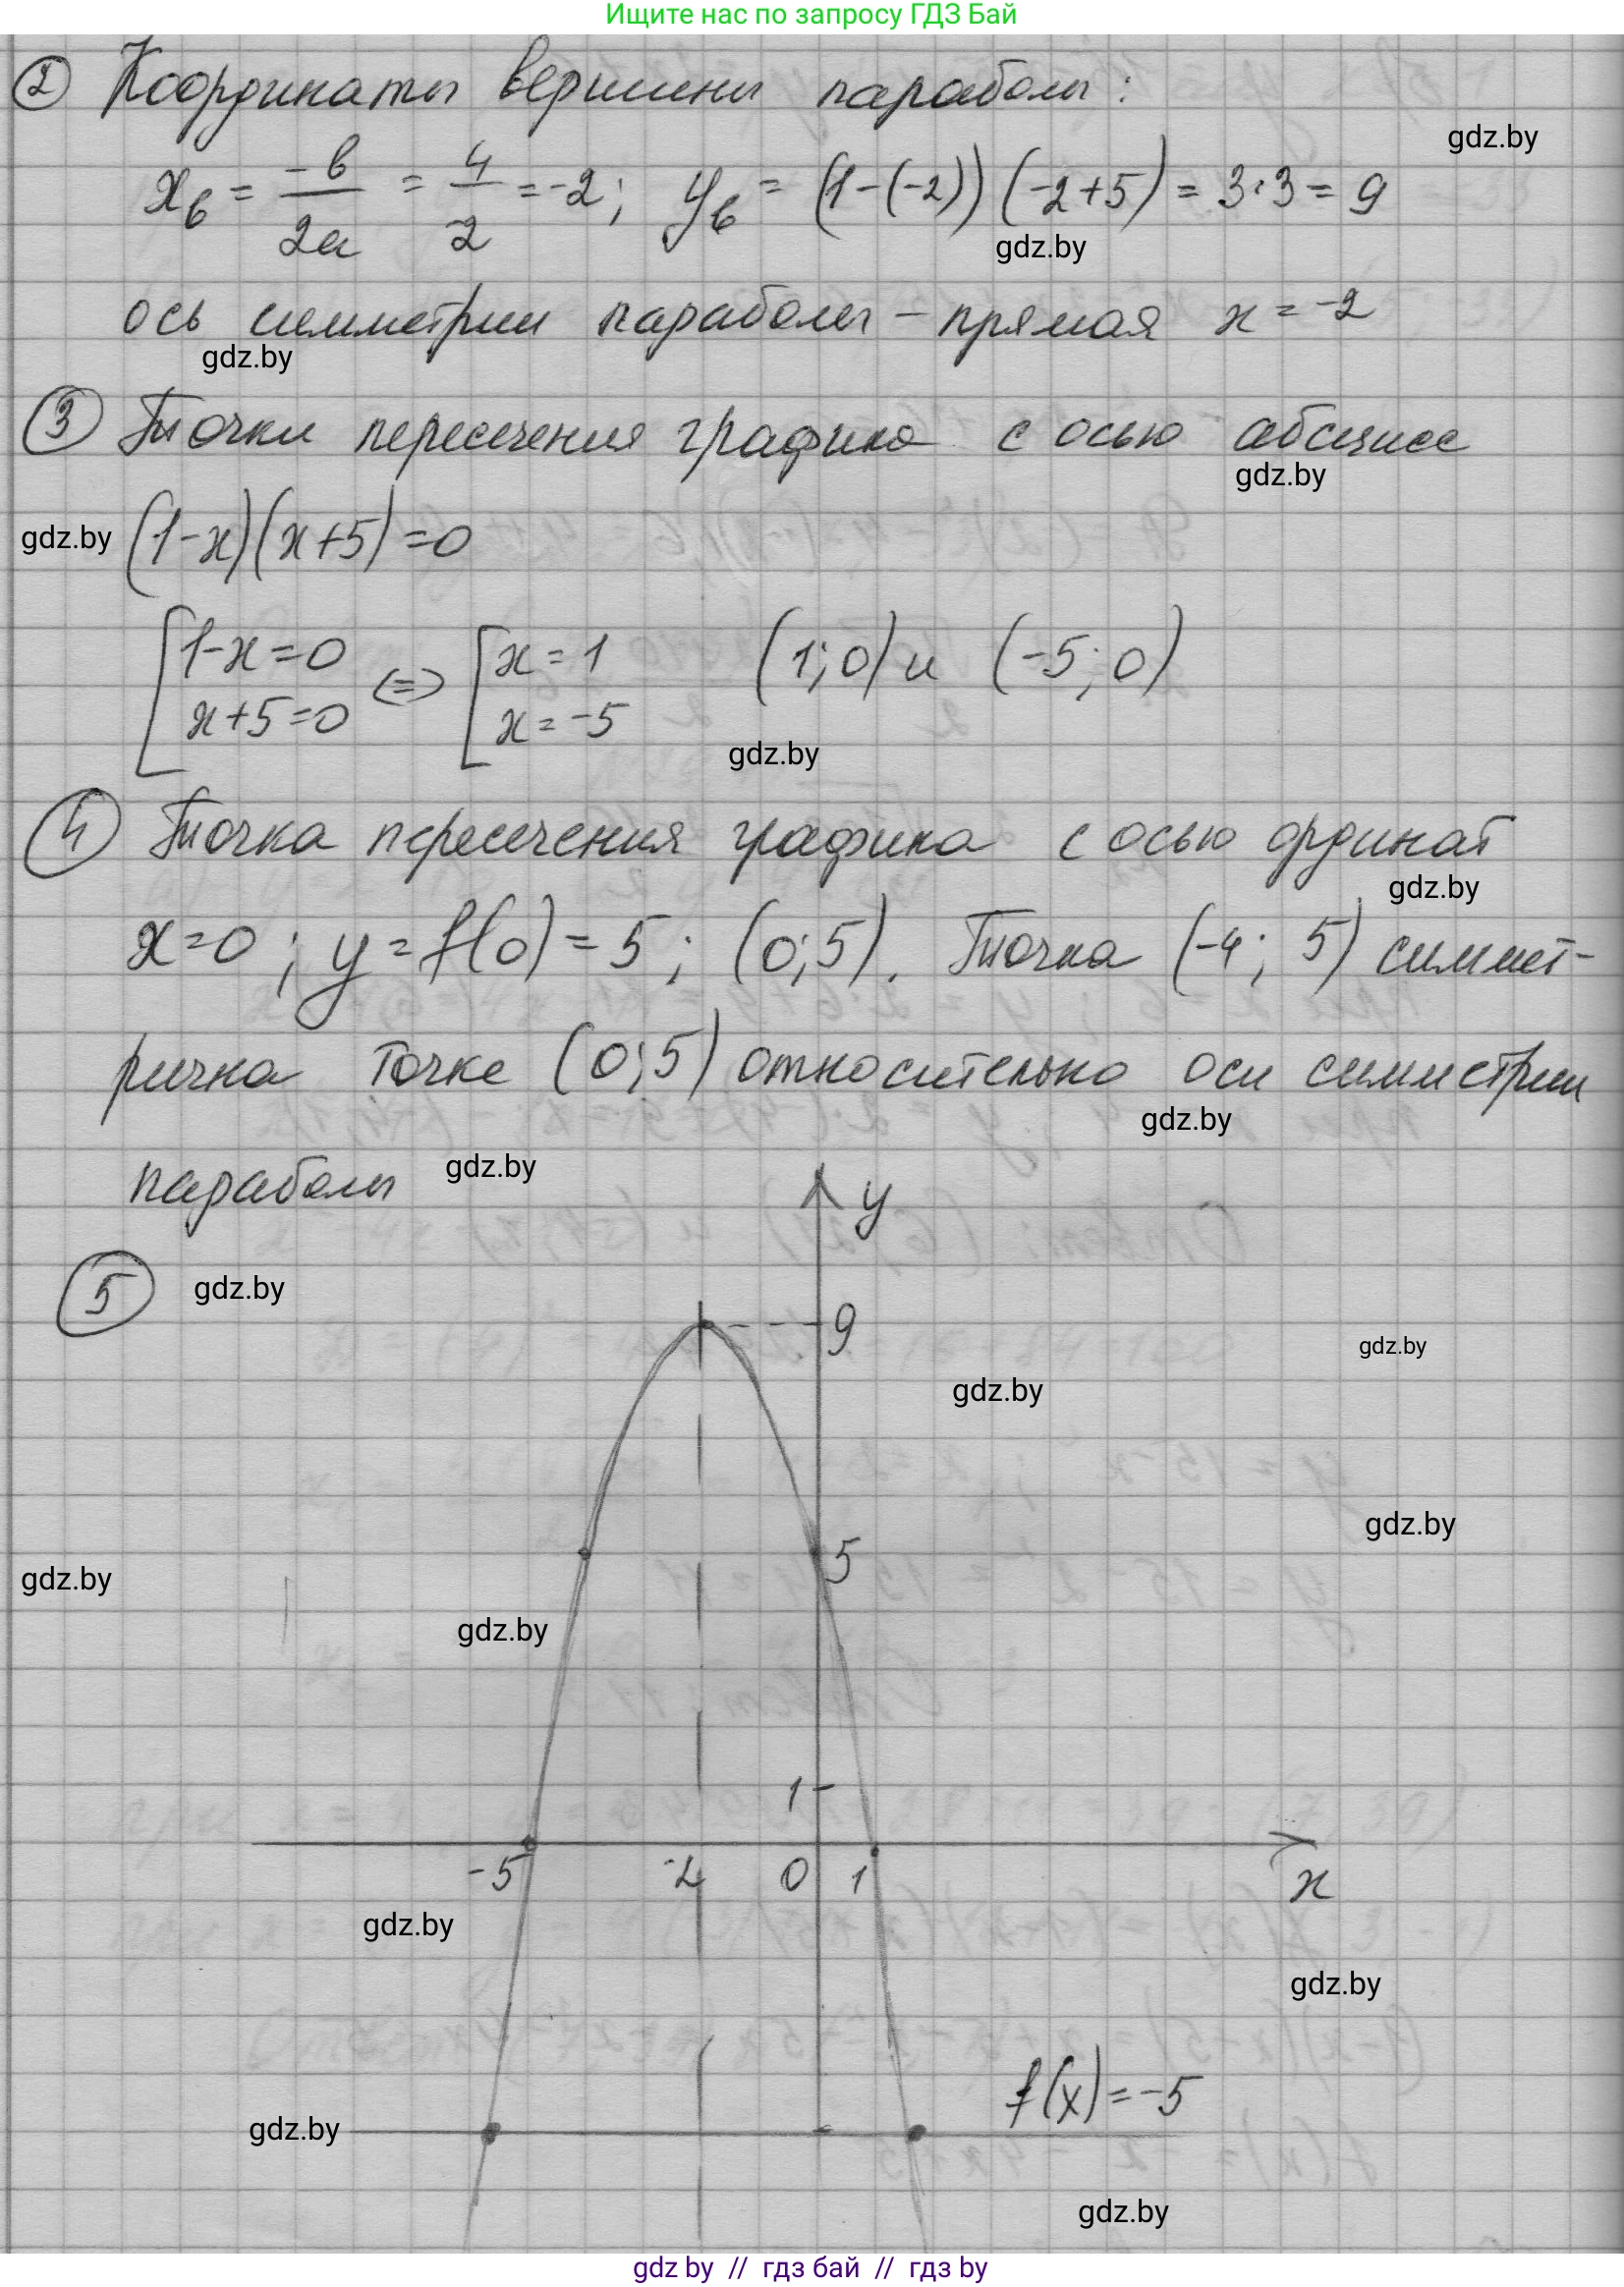 Ищите нас по запросу ГДЗ Бай
② Координаты вершины параболы:
gdz.by
x_в = -b/2a = 4/-2 = -2; y_в = (1-(-2))(-2+5) = 3·3 = 9
gdz.by
ось симметрии параболы – прямая x = -2
gdz.by
③ Точки пересечения графика с осью абсцисс
gdz.by
gdz.by (1-x)(x+5)=0
[1-x=0 ⇔ [x=1 (1;0) и (-5;0)
x+5=0 x=-5
gdz.by
④ Точка пересечения графика с осью ординат
gdz.by
x=0; y=f(0)=5; (0;5). Точка (-4; 5) симмет-
рична точке (0;5) относительно оси симметрии
gdz.by
параболы gdz.by
y
⑤ gdz.by
9
gdz.by
gdz.by
gdz.by
5
gdz.by
gdz.by
1
-5 -2 0 1 x
gdz.by
gdz.by
f(x)=-5
gdz.by
gdz.by
gdz by // гдз бай // гдз by